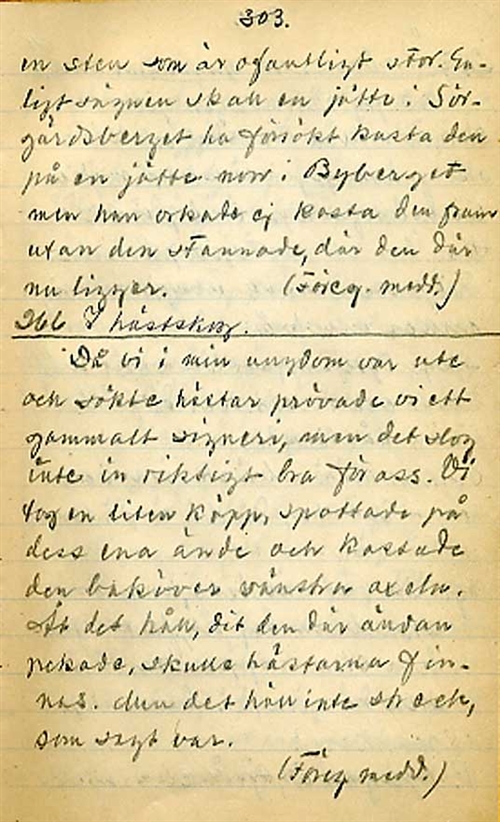 303.
en sten som är ofantligt stor. En-
ligt sägnen skall en jätte i Sör-
gårdsberget ha försökt kasta den
på en jätte norr i Byberget
men han orkade ej kasta den fram
utan den stannade, där den där
nu ligger. (Föreg. medd.)
266 I hästskog.
Då vi i min ungdom var ute
och sökte hästar prövade vi ett
gammalt signeri, men det slog
inte in riktigt bra för oss. Vi
tog en liten käpp, spottade på
dess ena ände och kastade
den baköver vänstra axeln.
Åt det håll, dit den där ändan
pekade, skulle hästarna fin-
nas. Men det höll inte streck,
som sagt var.
(Föreg medd.)